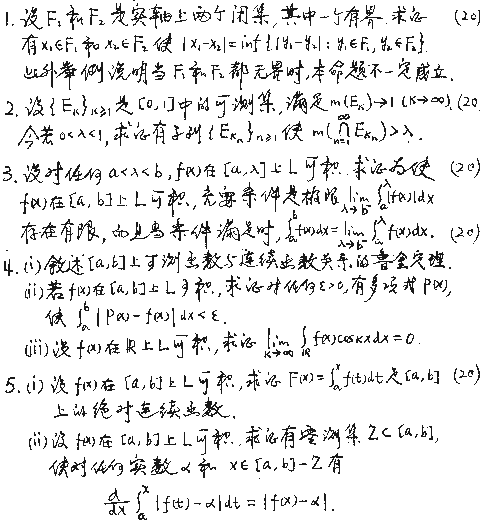 1. 设F₁和F₂是实轴上两个闭集,其中一个有界.求证 (20)
有x₁∈F₁和x₂∈F₂使|x₁-x₂|=inf{|y₁-y₂|:y₁∈F₁,y₂∈F₂}.
此外举例说明当F₁和F₂都无界时,本命题不一定成立.
2. 设{Eₖ}ₖ≥₁是[0,1]中的可测集,满足m(Eₖ)→1(k→∞). (20
今若0<λ<1,求证有子列{Eₖₙ}ₙ≥₁使m(∩ₙ₌₁^∞ Eₖₙ)>λ.
3. 设对任何a<λ<b,f(x)在[a,λ]上L可积.求证为使 (20)
f(x)在[a,b]上L可积,充要条件是极限lim_{λ→b⁻}∫ₐ^λ|f(x)|dx
存在有限,而且当条件满足时,∫ₐᵇf(x)dx=lim_{λ→b⁻}∫ₐ^λ f(x)dx. (20)
4. (i)叙述[a,b]上可测函数与连续函数关系的鲁金定理.
(ii)若f(x)在[a,b]上L可积,求证对任何ε>0,有多项式P(x),
使∫ₐᵇ|P(x)-f(x)|dx<ε.
(iii)设f(x)在R上L可积,求证lim_{k→∞}∫_R f(x)coskxdx=0.
5. (i)设f(x)在[a,b]上L可积,求证F(x)=∫ₐˣf(t)dt是[a,b] (20)
上的绝对连续函数.
(ii)设f(x)在[a,b]上L可积.求证有零测集Z⊂[a,b],
使对任何实数α和x∈[a,b]-Z有
d/dx∫ₐˣ|f(t)-α|dt=|f(x)-α|.